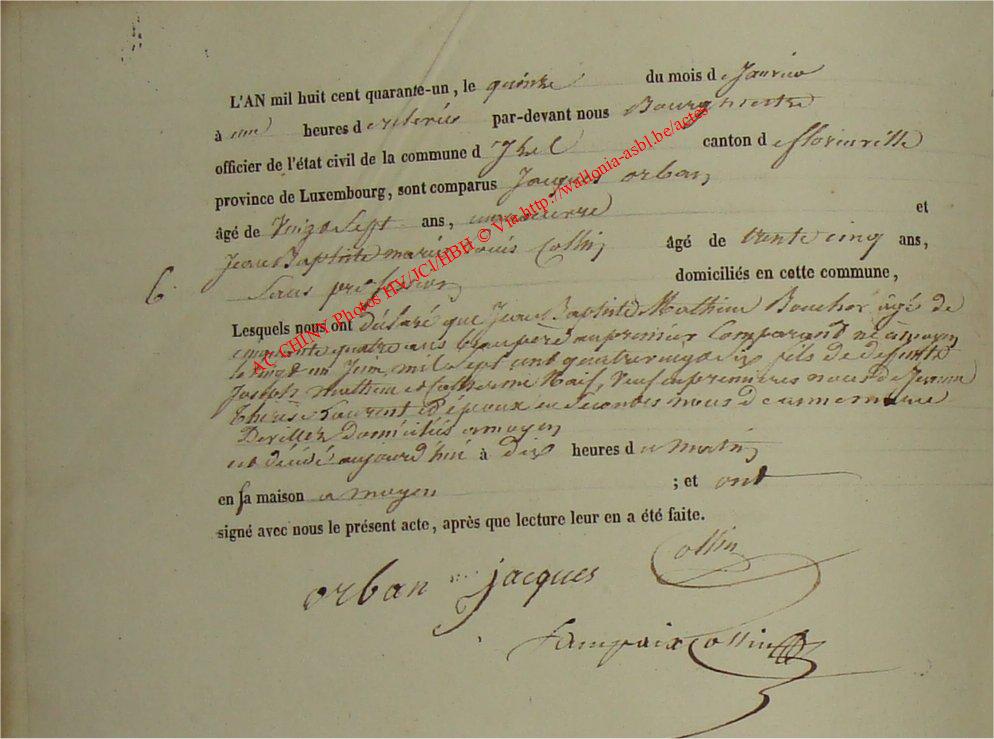 L'AN mil huit cent quarante-un, le quinze du mois de Janvier
à une heures de relevée par-devant nous Bourgmestre
officier de l'état civil de la commune d'Izel canton de florenville
province de Luxembourg, sont comparus Jacques orban
âgé de Vingt Sept ans, et
Jean Baptiste marie Louis Collin âgé de trente cinq ans,
6. Sans profession domiciliés en cette commune,
Lesquels nous ont déclaré que Jean Baptiste Mathieu âgé de
cinquante quatre ans beaupere au premier Comparant né à moyen
le vingt un Juin mil sept cent quatre vingt Six fils de defunts
Joseph mathieu et Catherine Naif, Veuf en premieres noces de
therese Laurent et époux en Secondes noces de anne marie
Devillez domiciliés a moyen
est décédé aujourd'hui à dix heures du matin
en sa maison a moyen ; et ont
signé avec nous le présent acte, après que lecture leur en a été faite.
orban jacques Collin
Lampaix Collin
AC CHINY Photos HV/JCl/HBH © Via http://wallonia-asbl.be/actes